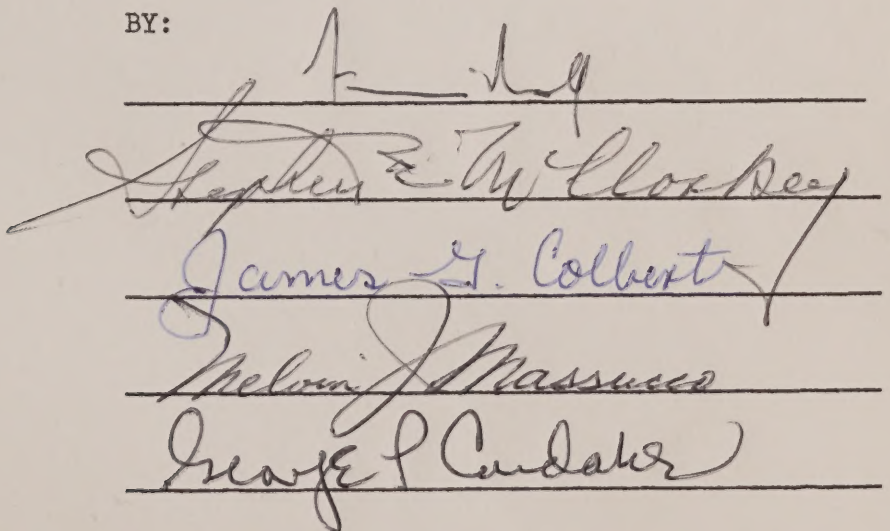 BY:
Stephen E. McCloskey
James G. Colbert
Melvin J. Massucco
George P Condakes